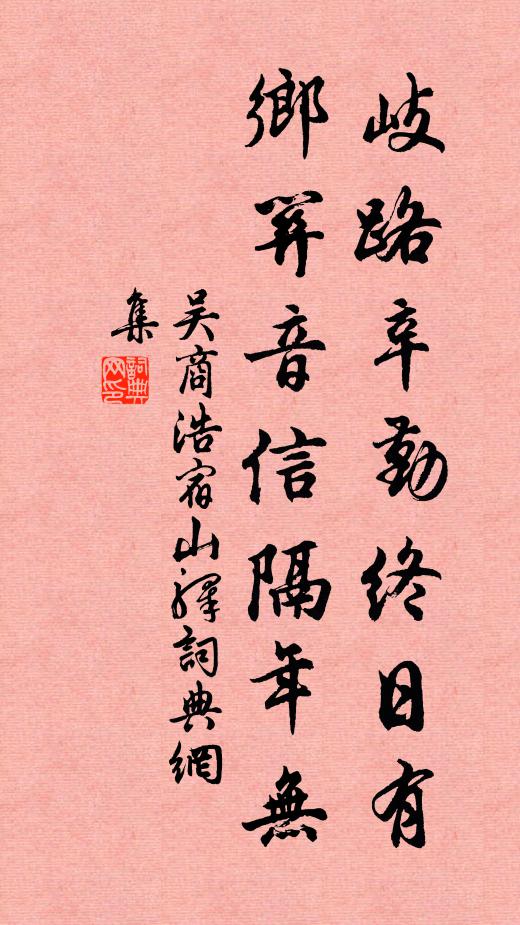 岐路辛勤終日有
鄉關音信隔年無
吴商浩宿山驛詞典網
集
詞典
网印